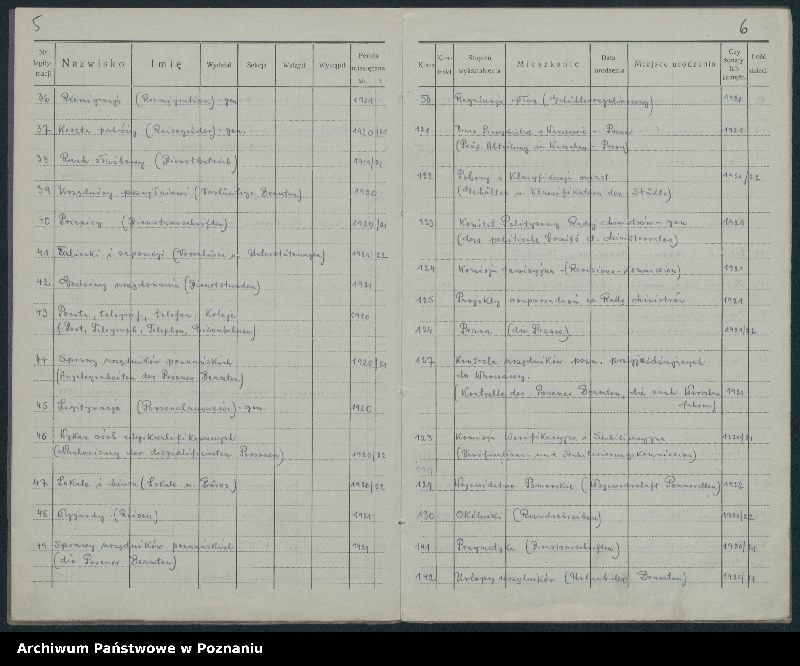 5
Nr legitymacji Nazwisko Imię Wydział Sekcja Wstąpił Wystąpił Pensja miesięczna
36 Reemigracja (Reemigration) - gen 1921
37 Koszta podróży (Reisegelder) - gen. 1920/21
38 Ruch służbowy (Dienstbetrieb) 1920/21
39 Urzędnicy przejściowi (Vorläufige Beamten) 1920
40 Przepisy (Dienstvorschriften) 1920/21
41 Zaliczki i zapomogi (Vorschüsse u. Unterstützungen) 1921/22
42 Godziny urzędowania (Dienststunden) 1921
43 Poczta, telegraf, telefon, Koleje 1920
(Post, Telegraph, Telephon, Eisenbahnen)
44 Sprawy urzędników poznańskich 1920/21
(Angelegenheiten der Posener Beamten)
45 Legitymacje (Personalausweise) - gen 1920
46 Wykaz osób zdyskwalifikowanych
(Nachweisung der disqualifizierten Personen) 1920/22
47 Lokale i biura (Lokale u. Büros) 1920/22
48 Wyjazdy (Reisen) 1921
49 Sprawy urzędników poznańskich 1921
(die Posener Beamten)
6
Klasa Stopień wykształcenia Mieszkanie Data urodzenia Miejsce urodzenia Czy żonaty lub zamężn. Ilość dzieci
50 Regulacja płac (Gehälterregulierung) 1921
121 Biuro Prezydialne w Warszawie - Prasa 1921
(Präs. Abteilung in Warschau - Presse)
122 Pobory i Klasyfikacja miast 1921/22
(Gehälter u. Klassifikation der Städte)
123 Komitet Polityczny Rady Ministrów - gen 1921
(das politische Comité d. Ministerrates)
124 Komisja rewizyjna - (Revisions-Kommission) 1921
125 Projekty rozporządzeń na Radę Ministrów 1921
126 Prasa (die Presse) 1921/22
127 Kontrola urzędników pozn. przyjeżdżających
do Warszawy.
(Kontrolle der Posener Beamten, die nach Warschau 1921
fahren)
128 Komisja Weryfikacyjna i Stabilizacyjna 1920/21
(Verifikations- und Stabilisierungskommission)
129 Województwo Pomorskie (Wojewodschaft Pommerellen) 1922
130 Okólniki (Rundschreiben) 1920/22
141 Pragmatyka (Dienstvorschriften) 1920/21
142 Urlopy urzędników (Urlaub der Beamten) 1920/21
Archiwum Państwowe w Poznaniu